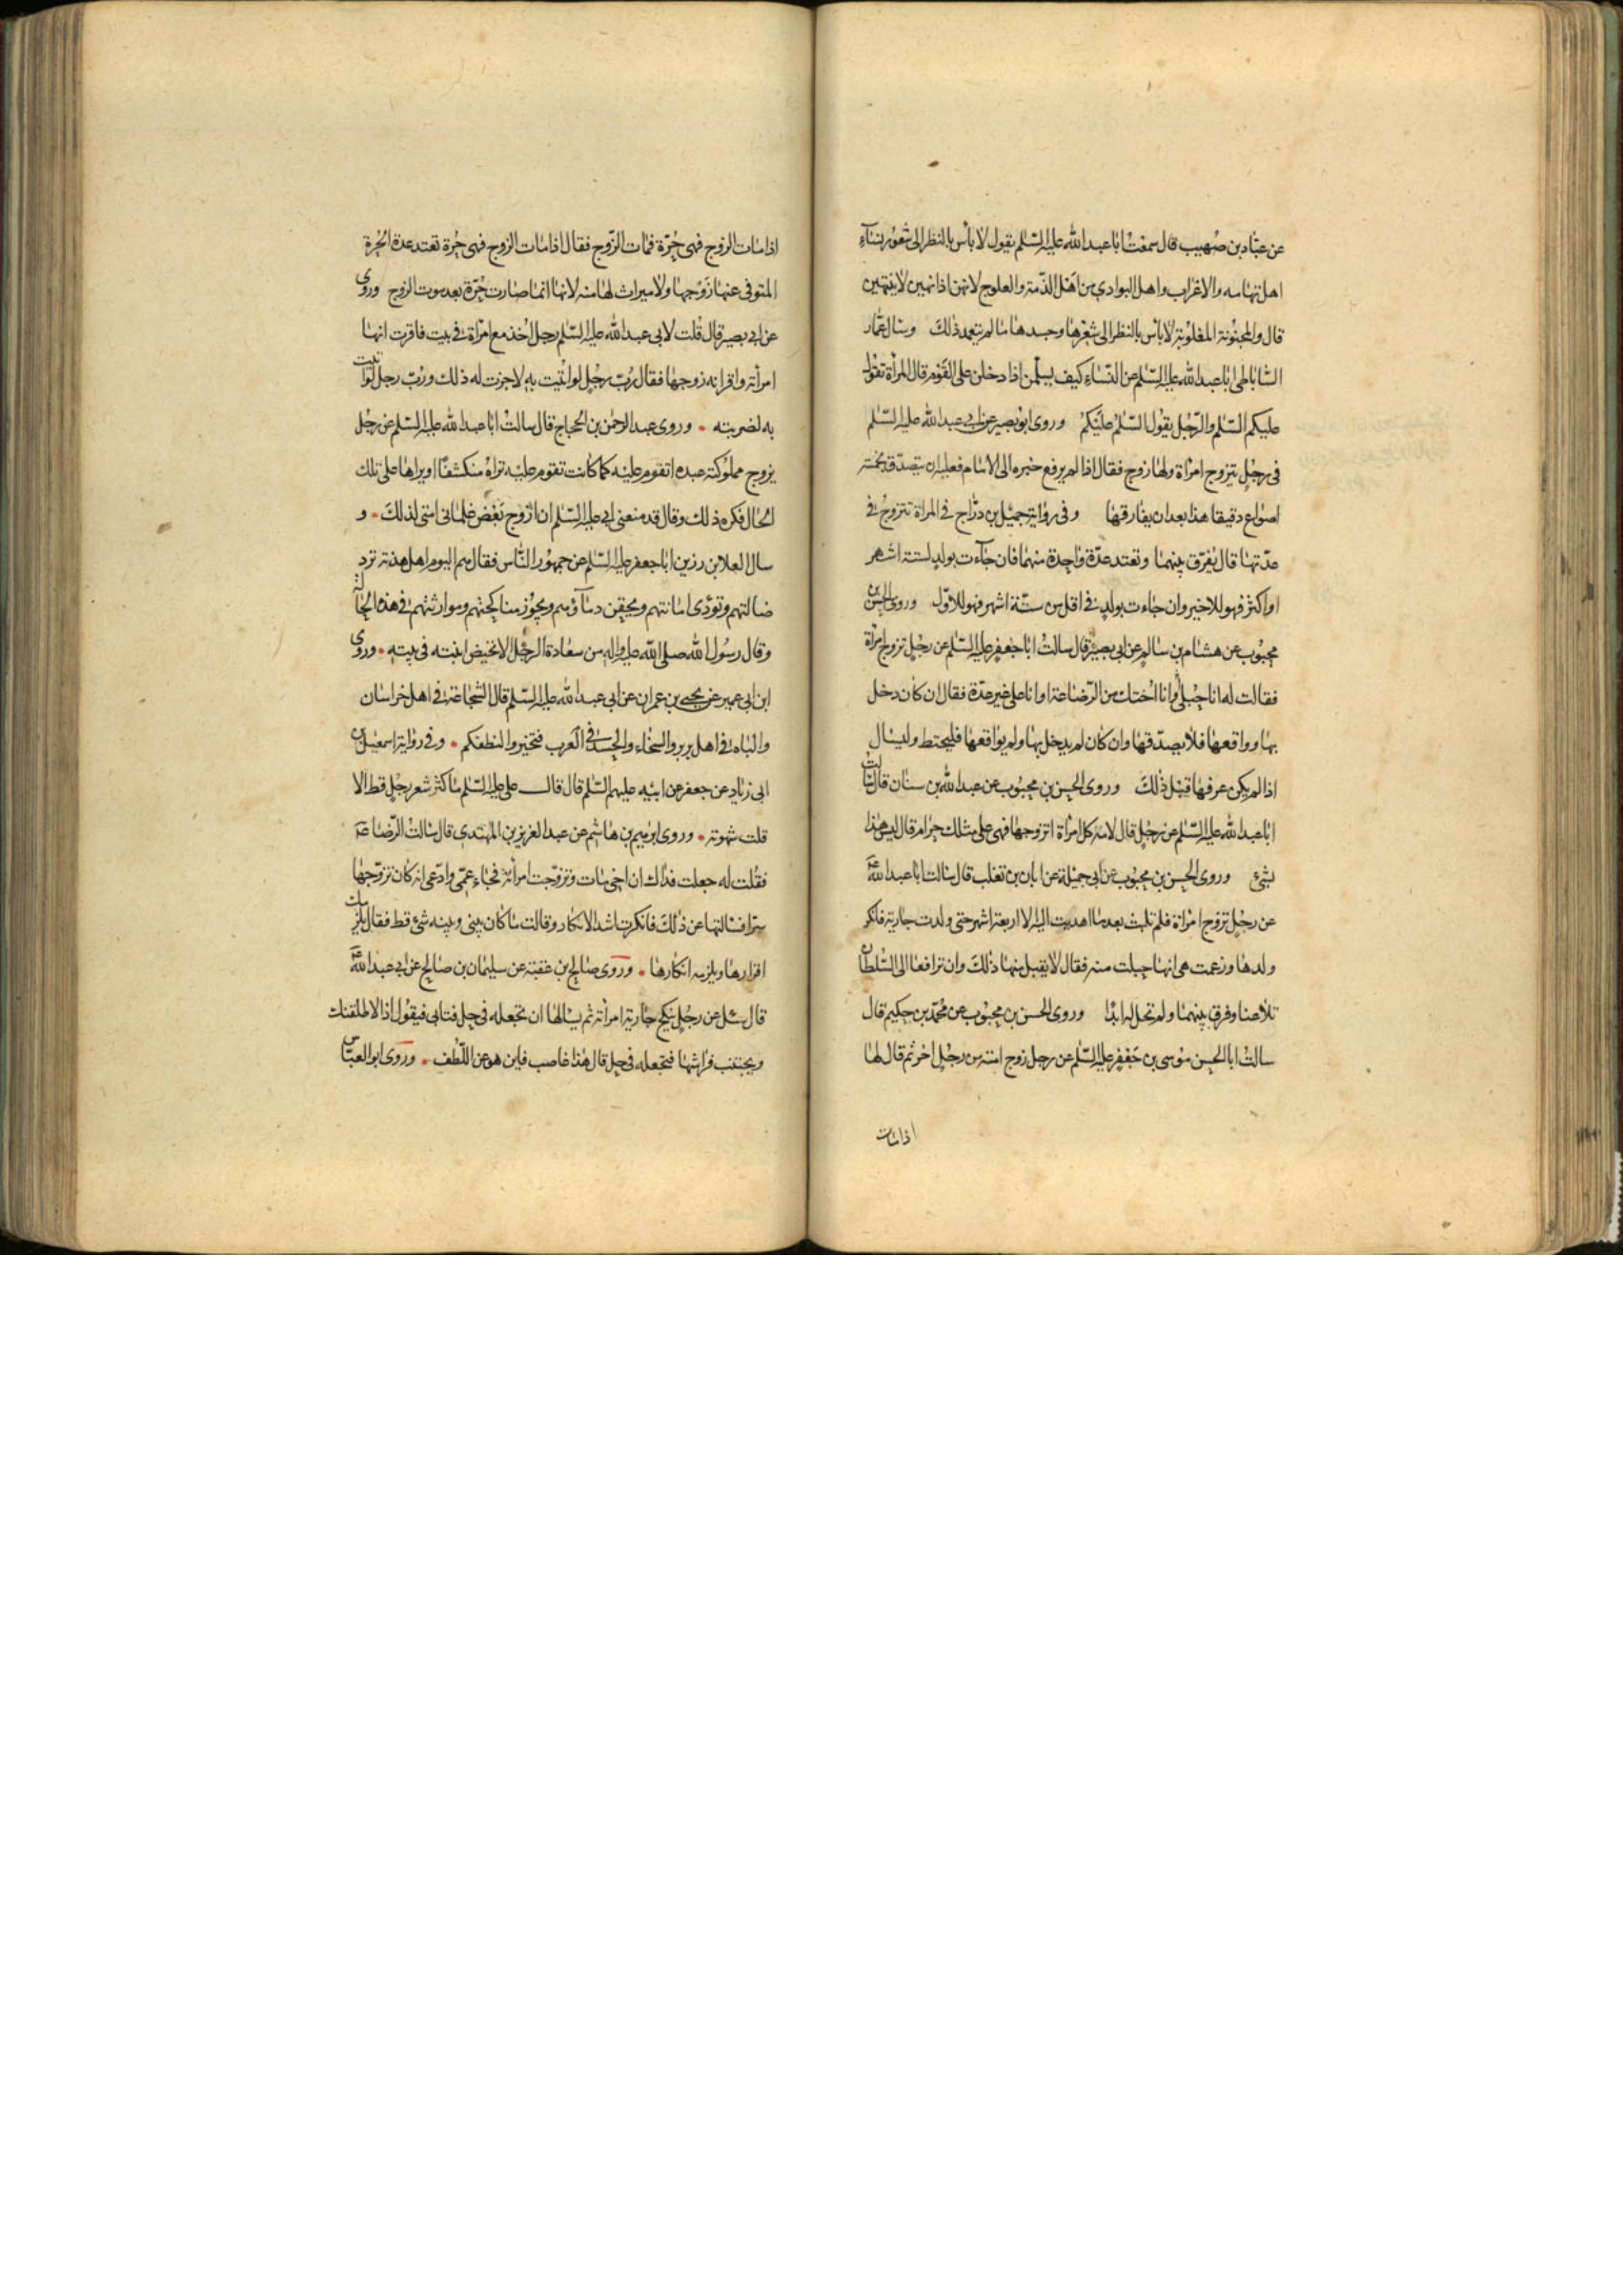 عن عباد بن صهيب قال سمعت ابا عبد الله عليه السلم يقول لا باس بالنظر الى شعور نساء
اهل تهامه والاعراب واهل البوادي من اهل الذمة والعلوج لانهن اذا نهين لا ينتهين
قال والمجنونة المغلوبة لا باس بالنظر الى شعرها وجسدها ما لم يتعمد ذلك وسال عمار
الساباطى ابا عبد الله عليه السلم عن النساء كيف يسلمن اذا دخلن على القوم قال المراة تقول
عليكم السلم والرجل يقول السلم عليكم وروى ابو بصير عن ابي عبد الله عليه السلم
فى رجل يتزوج امراة ولها زوج فقال اذا لم يرفع خبره الى الامام فعليه ان يتصدق بخمسة
اصواع دقيقا هذا بعد ان يفارقها وفى رواية جميل بن دراج في المراة تتزوج في
عدتها قال يفرق بينهما وتعتد عدة واحدة منهما فان جاءت بولد لستة اشهر
او اكثر فهو للاخير وان جاءت بولد في اقل من ستة اشهر فهو للاول وروى الحسن بن
محبوب عن هشام بن سالم عن ابى بصير قال سالت ابا جعفر عليه السلم عن رجل تزوج امراة
فقالت له انا حبلى وانا اختك من الرضاعة او انا على غير عدة فقال ان كان دخل
بها وواقعها فلا يصدقها وان كان لم يدخل بها ولم يواقعها فليحتط وليسال
اذا لم يكن عرفها قبل ذلك وروى الحسن بن محبوب عن عبد الله بن سنان قال سالت
ابا عبد الله عليه السلم عن رجل قال لامه كل امراة اتزوجها فهى على مثلك حرام قال ليس هذا
بشئ وروى الحسن بن محبوب عن ابى جميلة عن ابان بن تغلب قال سالت ابا عبد الله ع
عن رجل تزوج امراة فلم تلبث بعد ما اهديت اليه الا اربعة اشهر حتى ولدت جارية فانكر
ولدها وزعمت هى انها حبلت منه فقال لا يقبل منها ذلك وان ترافعا الى السلطان
تلاعنا وفرق بينهما ولم تحل له ابدا وروى الحسن بن محبوب عن محمد بن حكيم قال
سالت ابا الحسن موسى بن جعفر عليه السلم عن رجل زوج امته من رجل اخر ثم قال لها
اذا مات
اذا مات الزوج فهى حرة فمات الزوج فقال اذا مات الزوج فهى حرة تعتد عدة الحرة
المتوفى عنها زوجها ولا ميراث لها منه لانها انما صارت حرة بعد موت الزوج وروى
عن ابي بصير قال قلت لابى عبد الله عليه السلم رجل اخذ مع امراة في بيت فاقرت انها
امراته واقر انه زوجها فقال رب رجل لو اتيت به لاجزت له ذلك ورب رجل لو اتيت
به لضربته وروى عبد الرحمن بن الحجاج قال سالت ابا عبد الله عليه السلم عن رجل
يزوج مملوكته عبده اتقوم عليه كما كانت تقوم عليه تراه منكشفا او يراها على تلك
الحال فكره ذلك وقال قد منعنى ابى عليه السلم ان ازوج بعض غلمانى امتى لذلك و
سال العلا بن رزين ابا جعفر عليه السلم عن جمهور الناس فقال هم اليوم اهل هدنة ترد
ضالتهم وتؤدى امانتهم ويحقن دماؤهم ويجوز مناكحتهم وموارثتهم في هذه الحال
وقال رسول الله صلى الله عليه واله من سعادة الرجل الا تحيض ابنته فى بيته وروى
ابن ابى عمير عن يحيى بن عمران عن ابى عبد الله عليه السلم قال الشجاعة في اهل خراسان
والباه في اهل بربر والسخاء والحسد في العرب فتخيروا لنطفكم وفي رواية اسمعيل بن
ابى زياد عن جعفر عن ابيه عليهم السلم قال قال على عليه السلم ما كثر شعر رجل قط الا
قلت شهوته وروى ابرهيم بن هاشم عن عبد العزيز بن المهتدى قال سالت الرضا ع
فقلت له جعلت فداك ان اخى مات وتزوجت امراته فجاء عمى وادعى انه كان تزوجها
سرا فسالتها عن ذلك فانكرت اشد الانكار وقالت ما كان بينى وبينه شئ قط فقال يلزمك
اقرارها ويلزمه انكارها وروى صالح بن عقبة عن سليمان بن صالح عن ابى عبد الله ع
قال سئل عن رجل ينكح جارية امراته ثم يسالها ان تجعله فى حل فتابى فيقول اذا لاطلقنك
ويجتنب فراشها فتجعله فى حل قال هذا غاصب فاين هو عن اللطف وروى ابو العباس